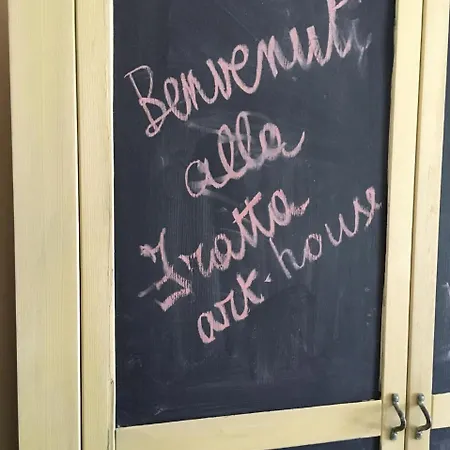 Benvenuti
alla
Fratta
art. house